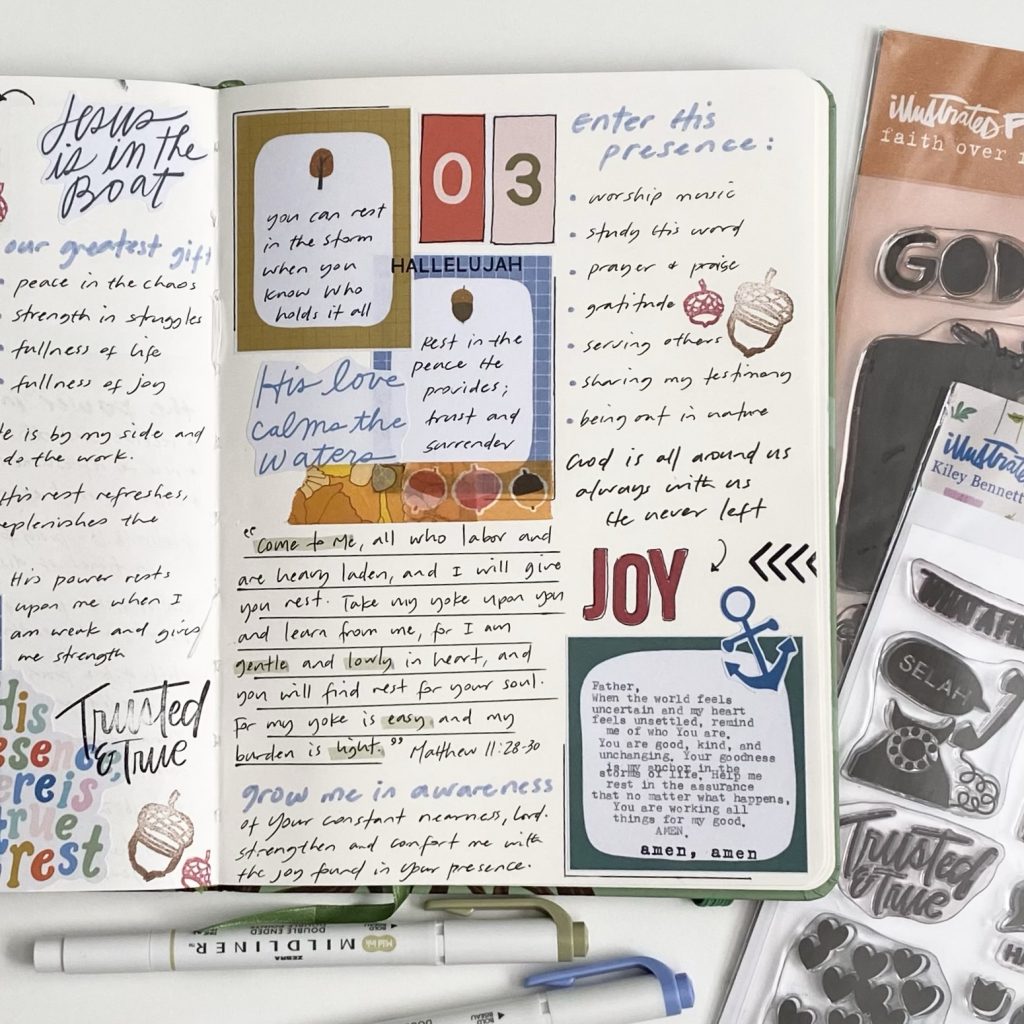 Jesus
is in the
Boat
our greatest gift
• peace in the chaos
• strength in struggles
• fullness of life
• fullness of joy
is by my side and
do the work.
His rest refreshes,
replenishes the
His power rests
upon me when I
am weak and gives
me strength
His
true
rest
Trusted
& True
you can rest
in the storm
when you
know who
holds it all
03
HALLELUJAH
Rest in the
peace He
provides;
trust and
surrender
His love
calms the
waters
"Come to Me, all who labor and
are heavy laden, and I will give
you rest. Take my yoke upon you
and learn from me, for I am
gentle and lowly in heart, and
you will find rest for your soul.
For my yoke is easy and my
burden is light." Matthew 11:28-30
grow me in awareness
of Your constant nearness, Lord.
strengthen and comfort me with
the joy found in Your presence.
Enter His
presence:
• worship music
• study His word
• prayer & praise
• gratitude
• serving others
• sharing my testimony
• being out in nature
God is all around us
always with us
He never left
JOY
Father,
When the world feels
uncertain and my heart
feels unsettled, remind
me of who You are.
You are good, kind, and
unchanging. Your goodness
is my anchor in the
storms of life. Help me
rest in the assurance
that no matter what happens,
You are working all
things for my good.
AMEN.
amen, amen
illustrated F
faith over
GOD
illustrate
Kiley Bennett
WHAT A FR
SELAH
Trusted
& True
HA
Mild ink
MILDLINER™
DOUBLE ENDED
ZEBRA
BOLD
BOLD